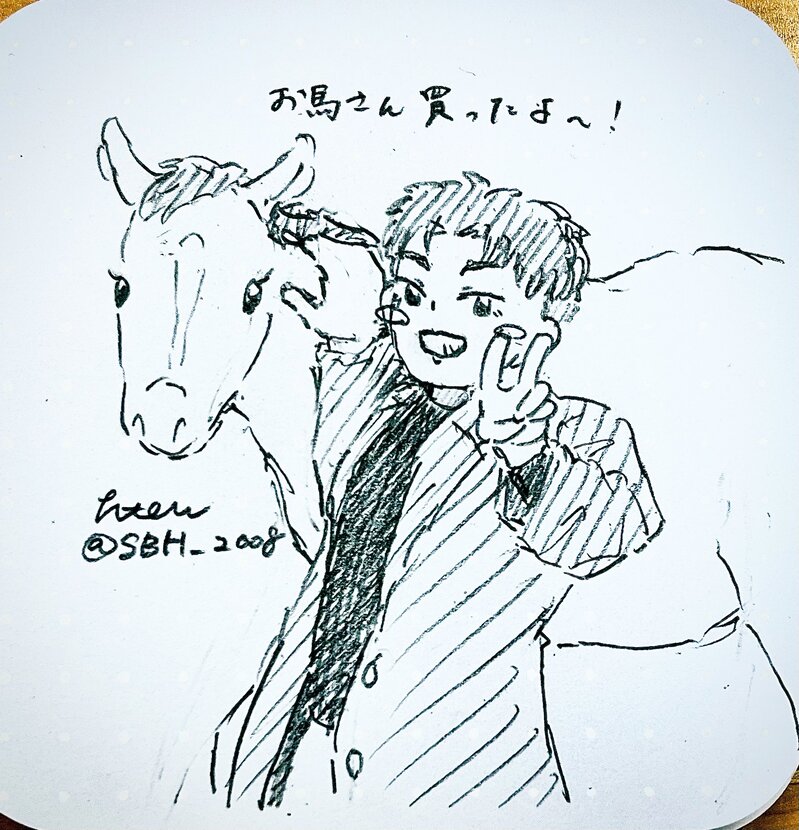 お馬さん買ったよ〜！
@SBH_2008